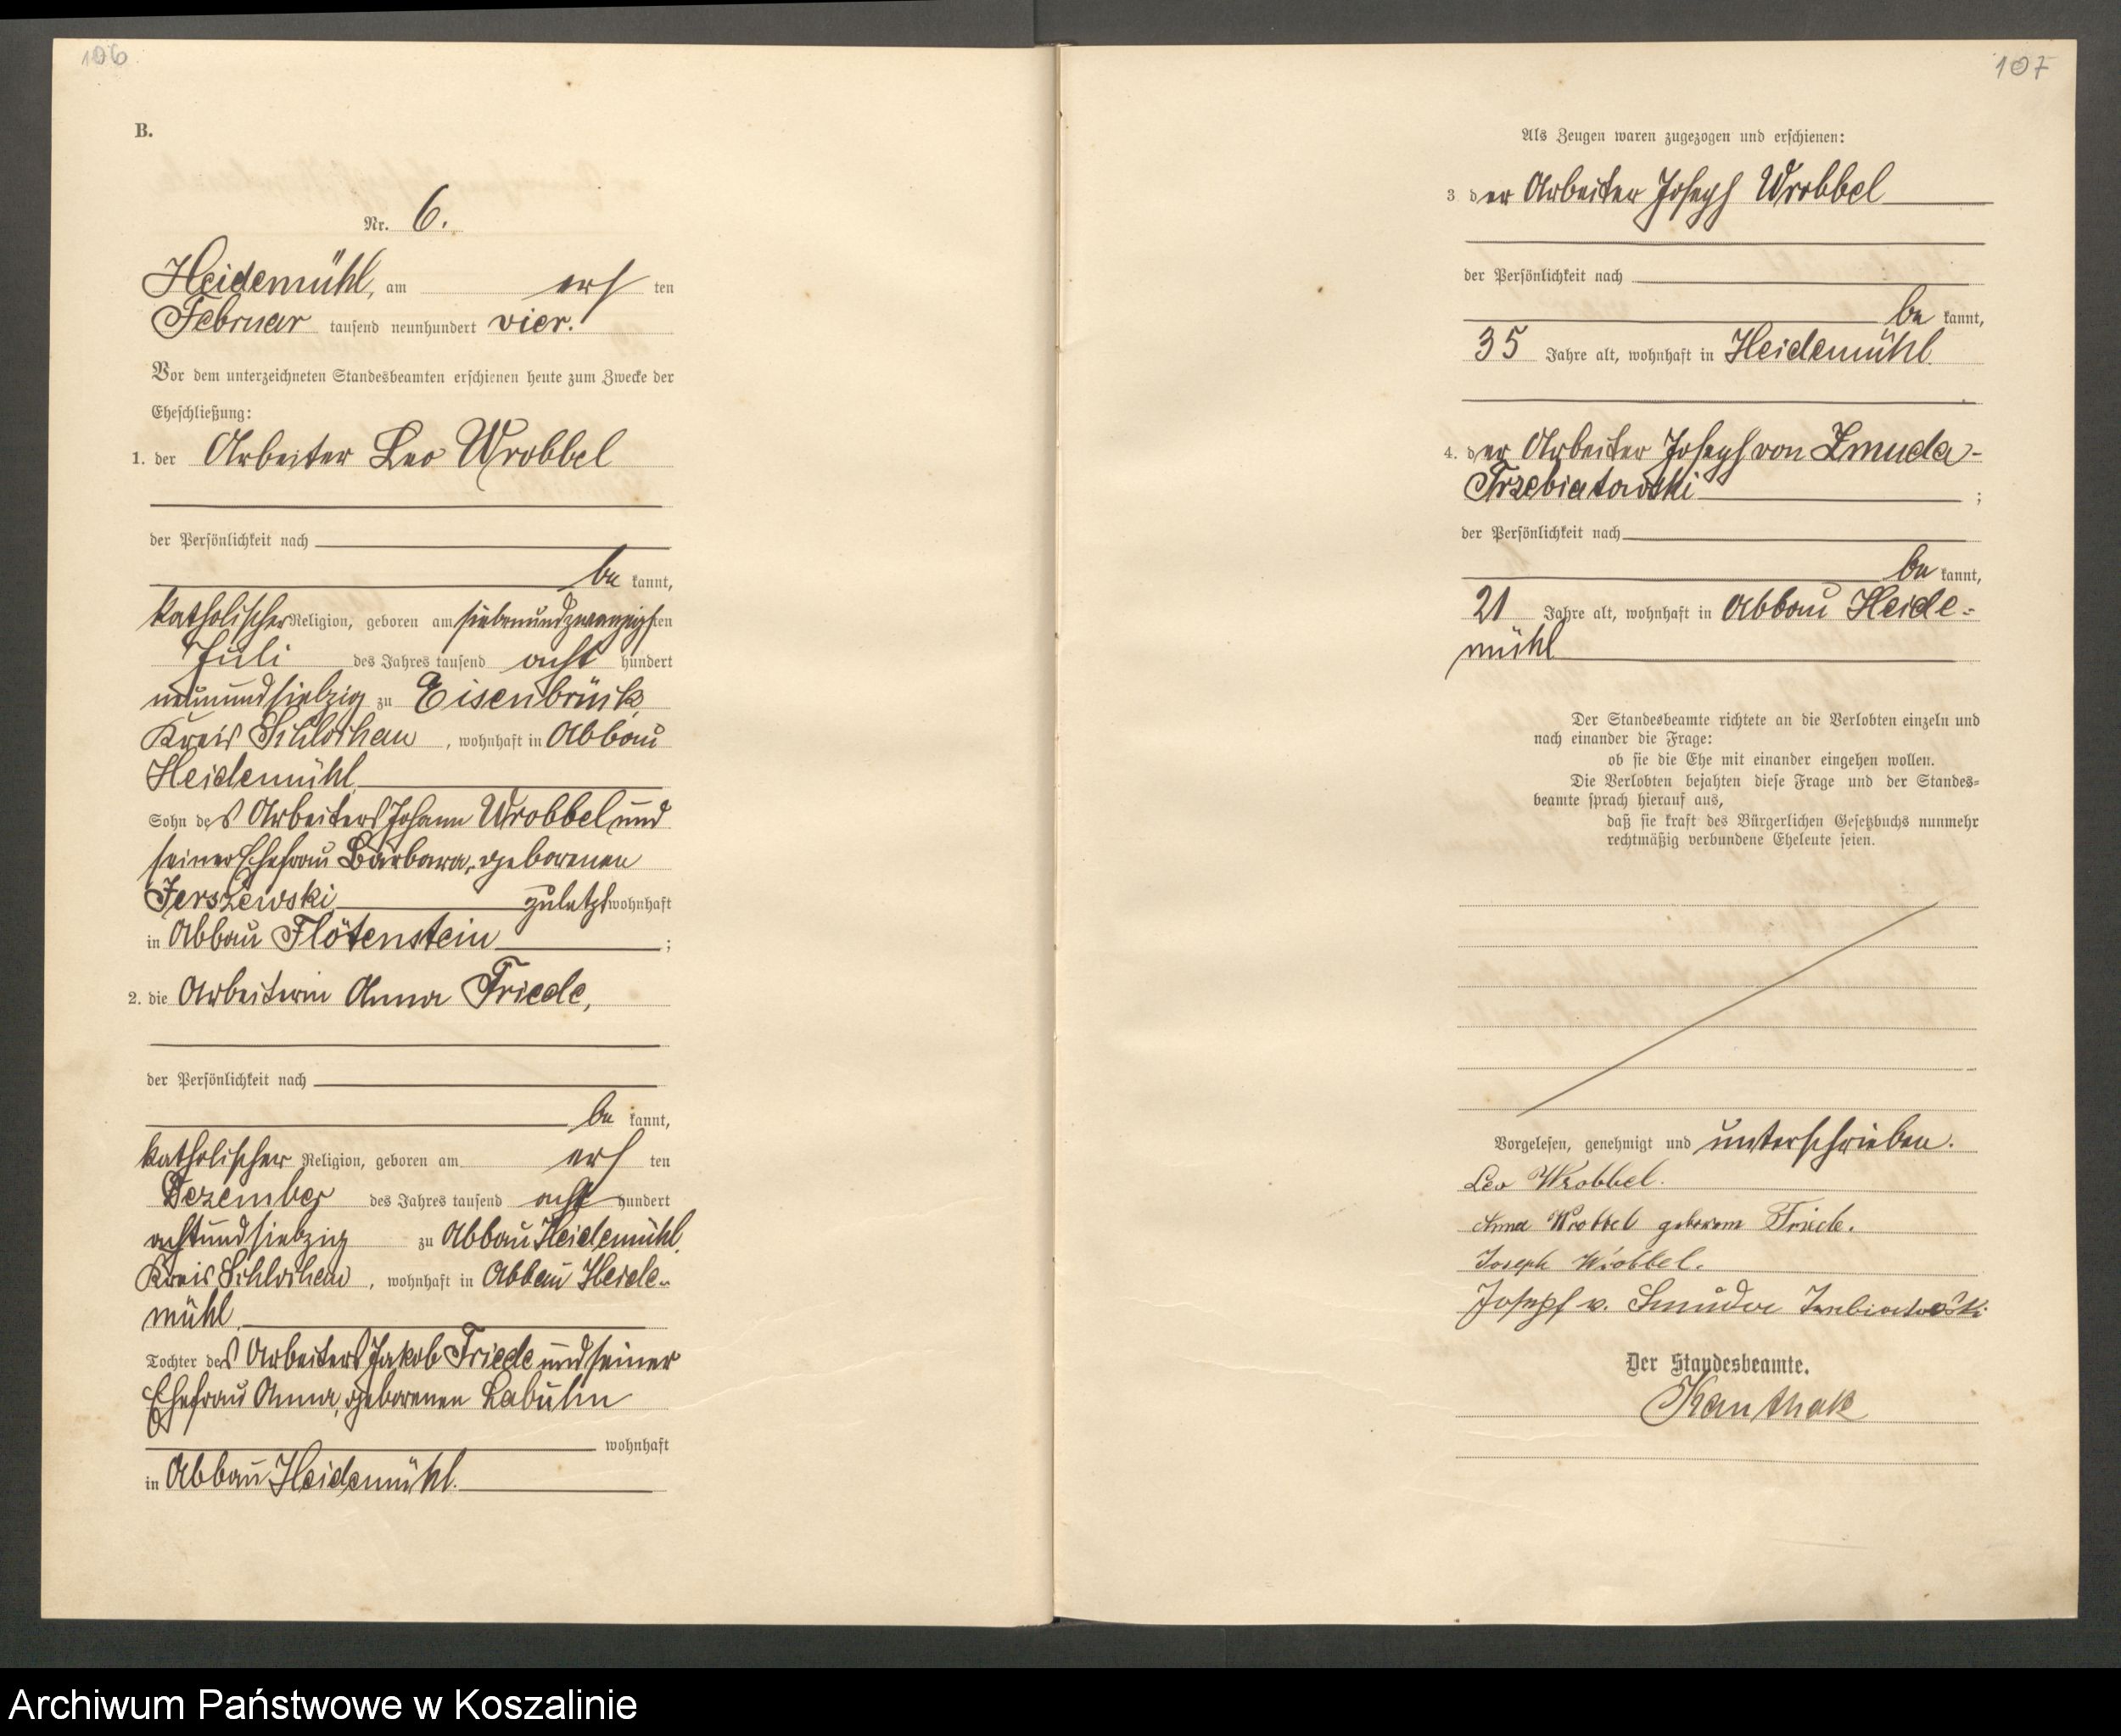 106
B.
Nr. 6.
Heidemühl, am erſ ten
Februar tauſend neunhundert vier.
Vor dem unterzeichneten Standesbeamten erſchienen heute zum Zwecke der
Eheſchließung:
1. der Arbeiter Leo Wrobbel
der Perſönlichkeit nach
be kannt,
katholiſcher Religion, geboren am ſiebenundzwanzigſten
Juli des Jahres tauſend acht hundert
neunundſiebzig zu Eisenbrück,
Kreis Schlochau, wohnhaft in Abbau
Heidemühl,
Sohn des Arbeiters Johann Wrobbel und
ſeiner Ehefrau Barbara, geborenen
Jerszewski zuletzt wohnhaft
in Abbau Flötenstein ;
2. die Arbeiterin Anna Friede,
der Perſönlichkeit nach
be kannt,
katholiſcher Religion, geboren am erſ ten
Dezember des Jahres tauſend acht hundert
achtundſiebzig zu Abbau Heidemühl,
Kreis Schlochau, wohnhaft in Abbau Heide-
mühl,
Tochter des Arbeiters Jakob Friede und ſeiner
Ehefrau Anna, geborenen Labuhn
wohnhaft
in Abbau Heidemühl.
107
Als Zeugen waren zugezogen und erſchienen:
3 der Arbeiter Joſeph Wrobbel
der Perſönlichkeit nach
be kannt,
35 Jahre alt, wohnhaft in Heidemühl.
4. der Arbeiter Joſeph von Zmuda-
Trzebiatowski ;
der Perſönlichkeit nach
be kannt,
21 Jahre alt, wohnhaft in Abbau Heide-
mühl
Der Standesbeamte richtete an die Verlobten einzeln und
nach einander die Frage:
ob ſie die Ehe mit einander eingehen wollen.
Die Verlobten bejahten dieſe Frage und der Standes=
beamte ſprach hierauf aus,
daß ſie kraft des Bürgerlichen Geſetzbuchs nunmehr
rechtmäßig verbundene Eheleute ſeien.
Vorgeleſen, genehmigt und unterſchrieben.
Leo Wrobbel.
Anna Wrobbel geborene Friede.
Joseph Wrobbel.
Joſeph v. Smuda Trzebiatowski
Der Standesbeamte.
Kanthak
Archiwum Państwowe w Koszalinie